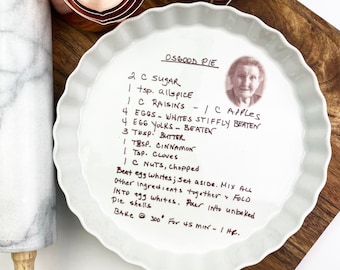 OSGOOD PIE
2 C SUGAR
1 tsp. allspice
1 C RAISINS - 1 C APPLES
4 EGGS - WHITES STIFFLY BEATEN
4 EGG YOLKS - BEATEN
3 TBSP. BUTTER
1 TBSP. CINNAMON
1 TSP. CLOVES
1 C NUTS, CHOPPED
Beat egg whites; Set aside. MIX ALL
Other ingredients together & FOLD
INTO egg whites. Pour into unbaked
Pie shells
BAKE @ 300° FOR 45 MIN - 1 HR.